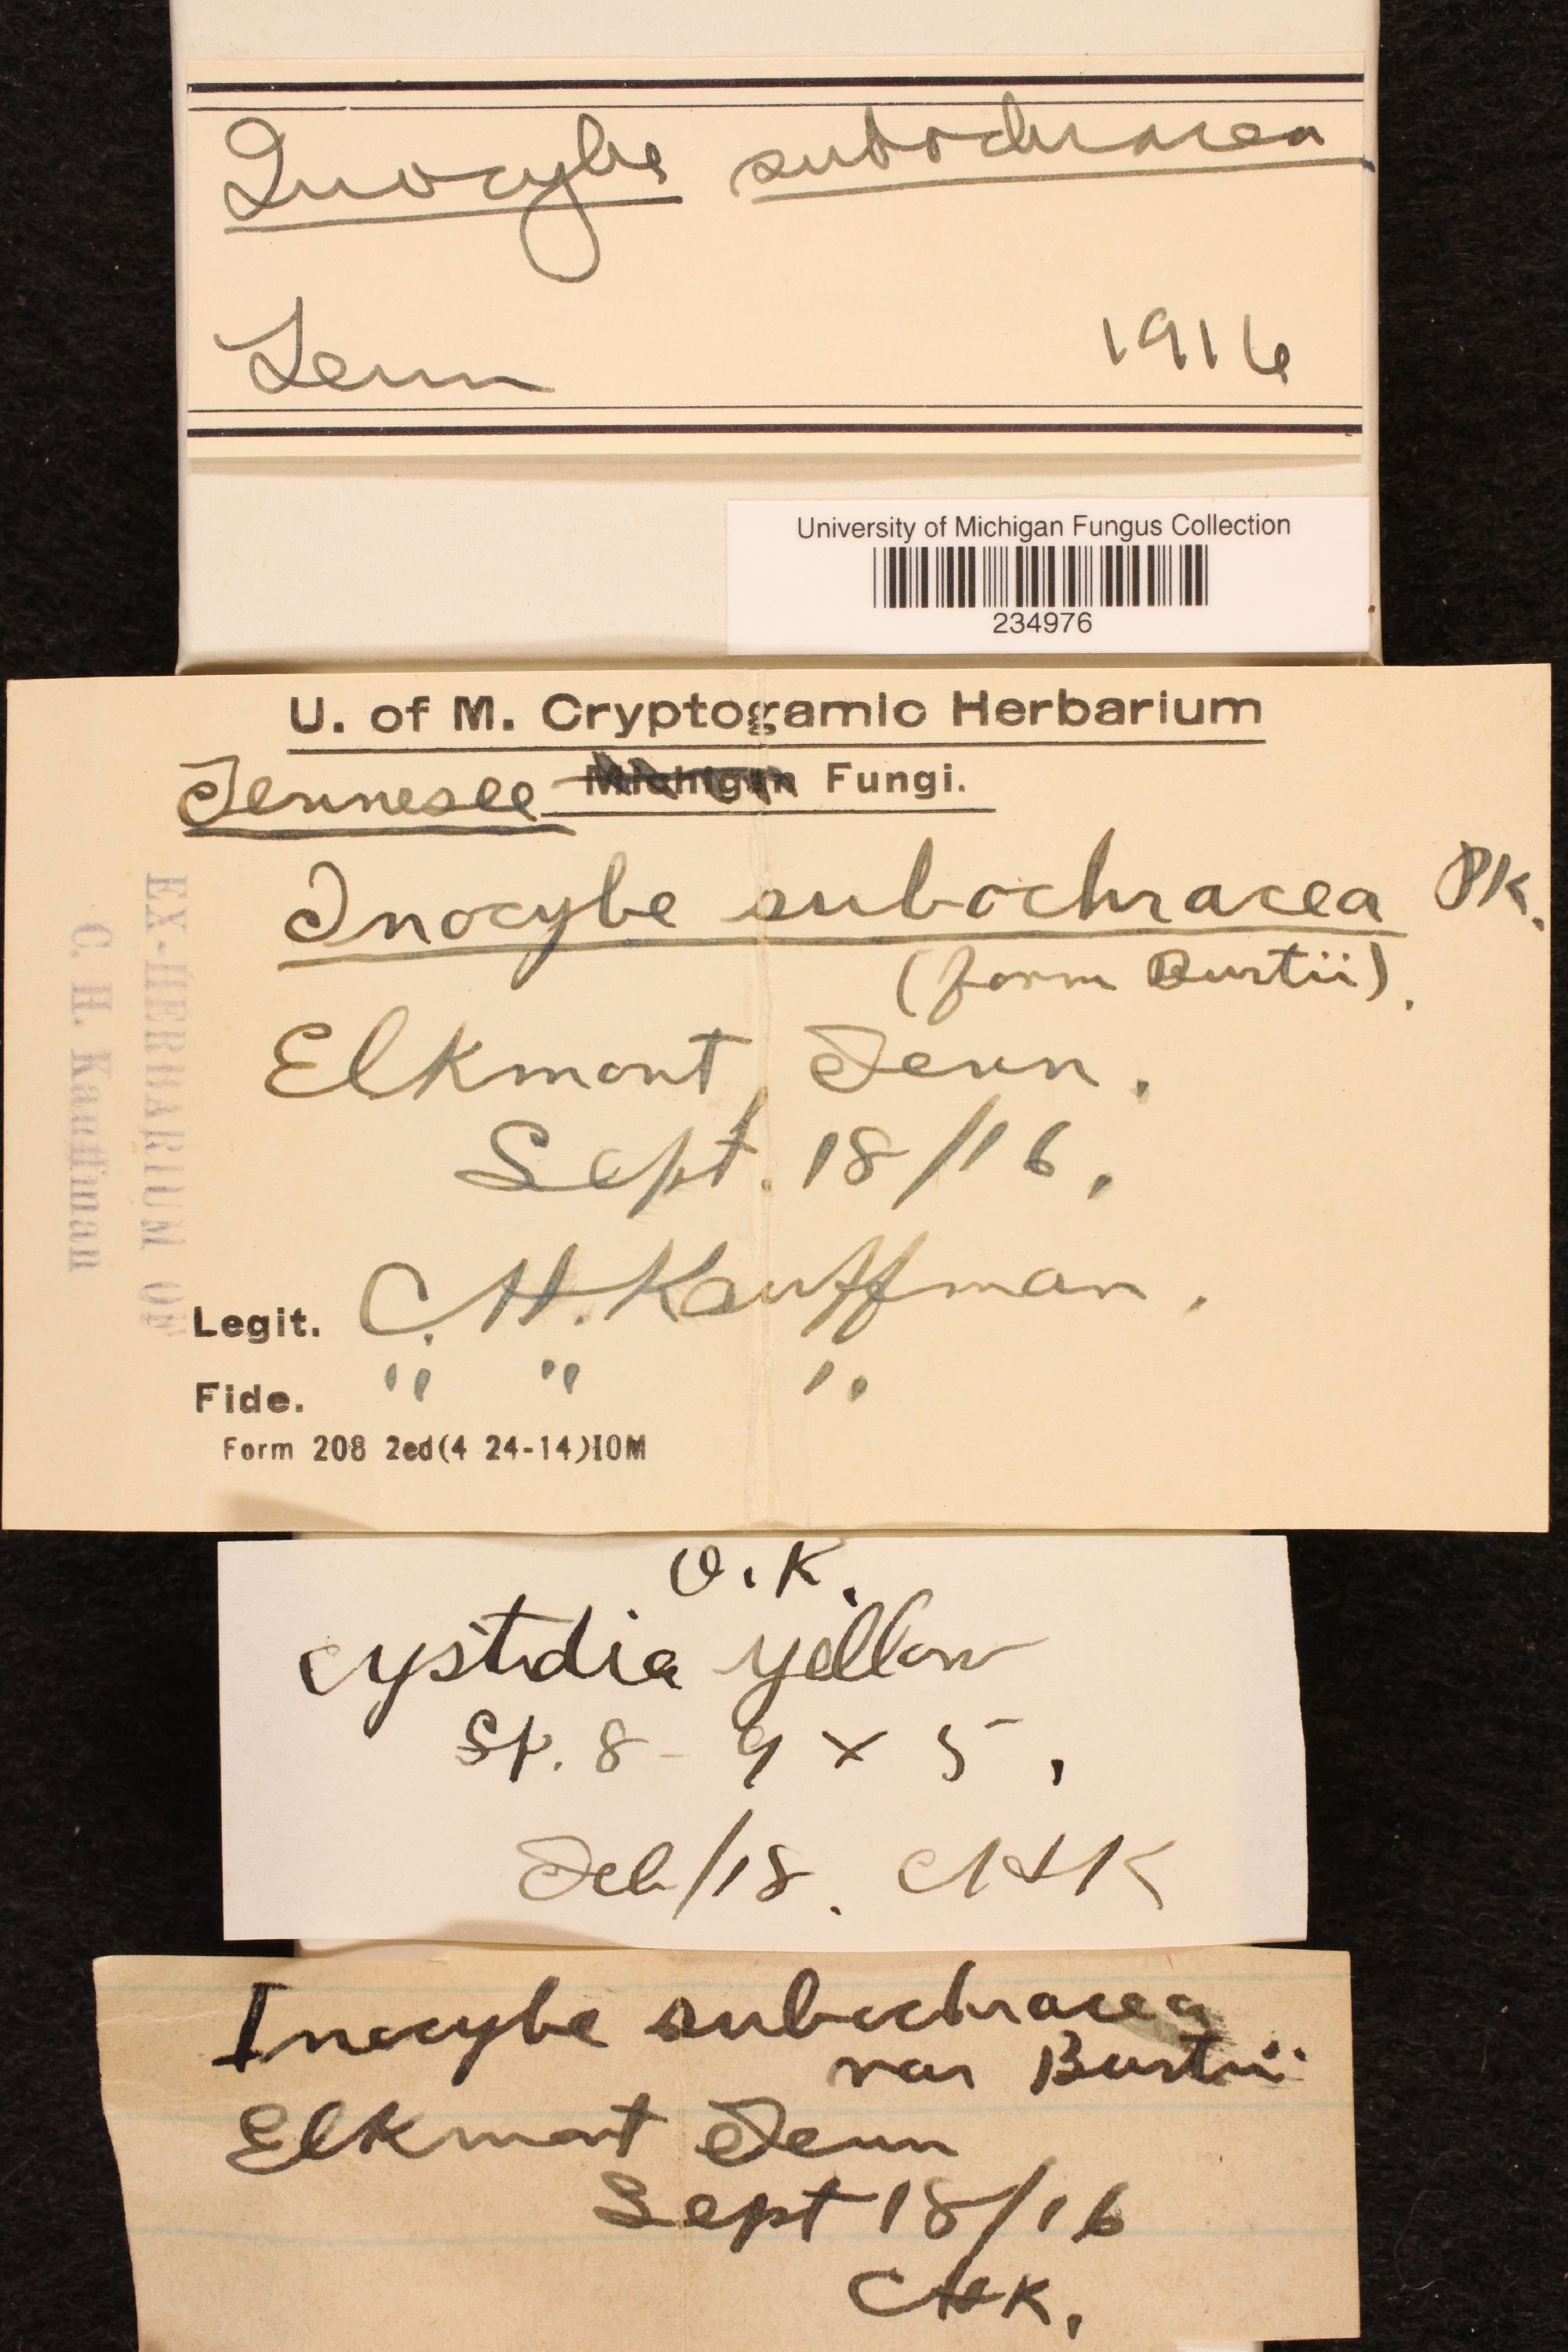 Inocybe subochracea
Tenn 1916
University of Michigan Fungus Collection
234976
U. of M. Cryptogamic Herbarium
Tennesee Michigan Fungi.
Inocybe subochracea Pk.
(form Burtii).
Elkmont, Tenn.
Sept. 18/16.
Legit. C. H. Kauffman.
Fide. " " "
Form 208 2ed(4 24-14)10M
EX-HERBARIUM OF
C. H. Kauffman
O.K.
cystidia yellow
Sp. 8-9 x 5.
Feb/18. CHK
Inocybe subochracea
var Burtii
Elkmont Tenn
Sept 18/16
CHK.